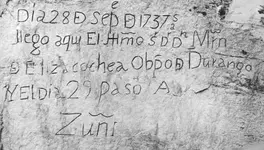 Dia 28 Ð Sepe Ð 1737 s
llego aqui El Illmo Sr Dr Dn Mrn
Ð Elizacochea Obpo Ð Durango
Y El Dia 29 Paso A
Zuñi